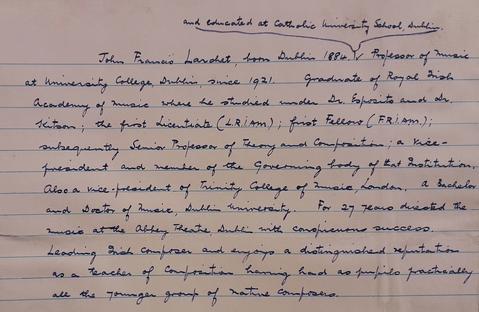 and educated at Catholic University School, Dublin.
John Francis Larchet, born Dublin 1884. Professor of Music
at University College, Dublin, since 1921. Graduate of Royal Irish
Academy of Music where he studied under Dr. Esposito and Dr.
Kitson; the first Licentiate (L.R.I.A.M.); first Fellow (F.R.I.A.M.);
subsequently Senior Professor of Theory and Composition; a Vice-
president and member of the Governing body of that Institution.
Also a vice-president of Trinity College of Music, London, a Bachelor
and Doctor of Music, Dublin University. For 27 years directed the
music at the Abbey Theatre, Dublin with conspicuous success.
Leading Irish Composer and enjoys a distinguished reputation
as a teacher of Composition having had as pupils practically
all the younger group of native composers.